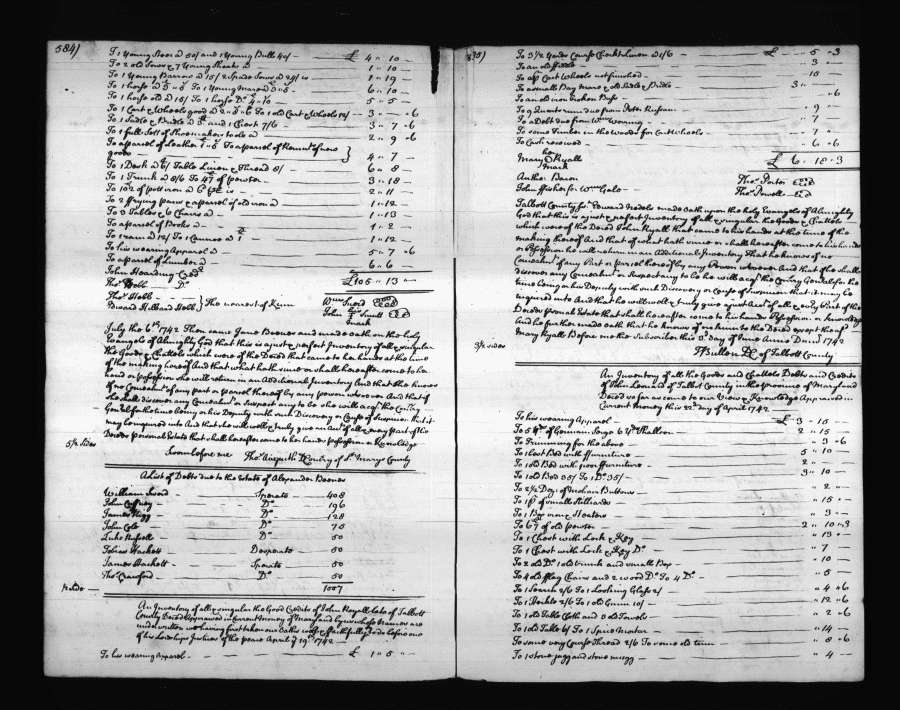 584)
To 1 Young Steer @ 50/ and 1 Young Bull 40/ £ 4 " 10 "
To 2 old Sows & 7 Young Shoats @ 1 " 10 "
To 1 Young Barrow @ 15/ 2 Spade Sows @ 1 " 19
To 1 horse @ To 1 Young mare @ 6 " 10 "
To 1 horse old @ 15/ To 1 horse Do 4 " 10 5 " 5 "
To 1 Cart & Wheels good @ To 1 old Cart & Wheels 12/ 3 " " 6
To 1 Sadle & Bridle @ and 1 Chest 7/6 3 " 7 " 6
To 1 full Sett of Shoemakers tools @ 2 " 9 " 6
To a parcel of Leather To a parcel of
goods 4 " 7 "
To 1 Desk @ Table Linnen & Thread 8/ 6 " 8 "
To 1 Trunk @ 8/6 To 47 of pewter 3 " 18
To 102 of pott iron @ 2 " 11
To 2 frying pans & parcel of old iron @ 1 " 12
To 3 Tables & 6 Chairs @ 1 " 13
To a parcel of Books @ 1 " 2
To 1 @ 12/ To 1 Cannoe @ 1 " 12
To his wearing Apparel @ 5 " 7 " 6
To a parcel of Lumber @ 6 " 6
John Hoarding Credr
Thos Hebb Do £105 " 13 "
Thos Hebb
Edward Hilliard Hebb } The nearest of Kinn
Wm
John
mark
July the 6th 1742 Then came Jane Beenes and made oath on the holy
Evangels of Almighty God that this is a just & perfect Inventory of all & singular
the Goods & Chattels which were of the Deced that came to her hands at the time
of the making hereof And that what hath since or shall hereafter come to her
hand or possession she will return in an Additional Inventory And that she knows
of no Concealmt of any part or parcel thereof by any person whatever And that if
she shall discover any Concealmt or suspect any to be she will acqt the Comry
Genl for the time being or his Deputy with such Discovery or Cause of Suspicion that it
may be inquired into And that she will well & truly give an Acct of all & every part of the
Deceds personal Estate that shall hereafter come to her hands possession or Knowledge
5/2 sides
Sworn before me Thos Aisquith D Comry of St Marys County
A List of Debts due to the Estate of Alexander Beenes
William Sword Sperate 408
John Do 196
James Do 128
John Cole Do 75
Luke Russell Do 50
Tobias Hackett Desperate 50
James Hackett Sperate 50
Thos Crawford Do 50
1007
An Inventory of all & singular the Good Credits of John Ryall late of Talbott
County Deced Appraised in Current Money of Maryland by us whose Names are
underwritten we having first taken our Oaths well & faithfully to do before one
of his Lordships Justices of the peace April ye 19th 1742
To his wearing Apparel £ 1 " 5 "
To 3 1/2 Yards coarse Checkt Linnen @ 1/6 £ " 5 " 3
To an old Saddle " 3 "
To a pr Cart Wheels not finished " 15
To a small Bay Mare & old Sadle & Bridle 3 "
To an old iron broken Bess " 6
To 9 Quarts rum due from Peter Russum " 9 "
To a Debt due from Wm Waring " 7
To some Timber in the Woods for Cartwheels " 7 "
To Cash received " 6 " 6
her
Mary Ryall £ 6 " 18 " 3
mark
Antho: Bacon Thos Porter
John ffisher for Wm Gale Thos Powell
Talbott County fst Edward Needels made oath upon the holy Evangels of Almighty
God that this is a just & perfect Inventory of all & singular the Goods & Chattels
which were of the Deced John Ryall that came to his hands at the time of the
making thereof And that of what hath since or shall hereafter come to his hands
or Possession he will return in an Additional Inventory That he knows of no
Concealmt of any Part or parcel thereof by any Person whatever And that if he shall
discover any Concealmt or Suspect any to be he will acqt the Comry General for the
time being or his Deputy with such Discovery or Cause of Suspicion that it may be
inquired into And that he will well & truly give a just Acct of all & every Part of the
Deceds personal Estate that shall hereafter come to his hands Possession or Knowledge
And he further made oath that he knows of no kin to the Deced except the
Mary Ryall Before me the Subscriber this day of June Anno Domi 1742
3/2 sides
T Bullen DC of Talbott County
An Inventory of all the Goods and Chattels Debts and Credits
of John Leonard of Talbot County in the province of Maryland
Deced so far as come to our View & Knowledge Appraised in
Current money this 22d day of April 1742
To his wearing Apparel £ 3 " 15
To 5 yds of German Serge 6 yds Shalloon 2 " 15
To Trimming for the above " 3 " 6
To 1 best Bed with ffurniture 5 " 10
To 1 old Bed with poor ffurniture 2 "
To 1 old Bed 35/ To 1 Do 35/ 3 " 10
To 2 1/2 Doz: of Mohair Buttons " 2
To 1 pr of small Stilliards " 15
To 1 Box iron & Heaters " 3
To 67 of old pewter 2 " 10 " 3
To 1 Chest with Lock & Key " 13
To 1 Chest with Lock & Key Do " 7
To 2 old Do 1 old trunk and small Box " 10
To 4 old fflag Chairs and 2 wood Do To 4 Do " 5
To 1 Search 2/6 To 1 Looking Glass 2/ " 4 " 6
To 1 Heckle 2/6 To 1 old Gunn 10/ " 12 " 6
To 1 old Table Cloth and 3 old Towels " 2 " 6
To 1 old Table 6/ To 1 Spice Mortar " 14
To some very Course Thread 2/6 To some old iron " 8 " 6
To 1 stone jugg and stone mugg " 4